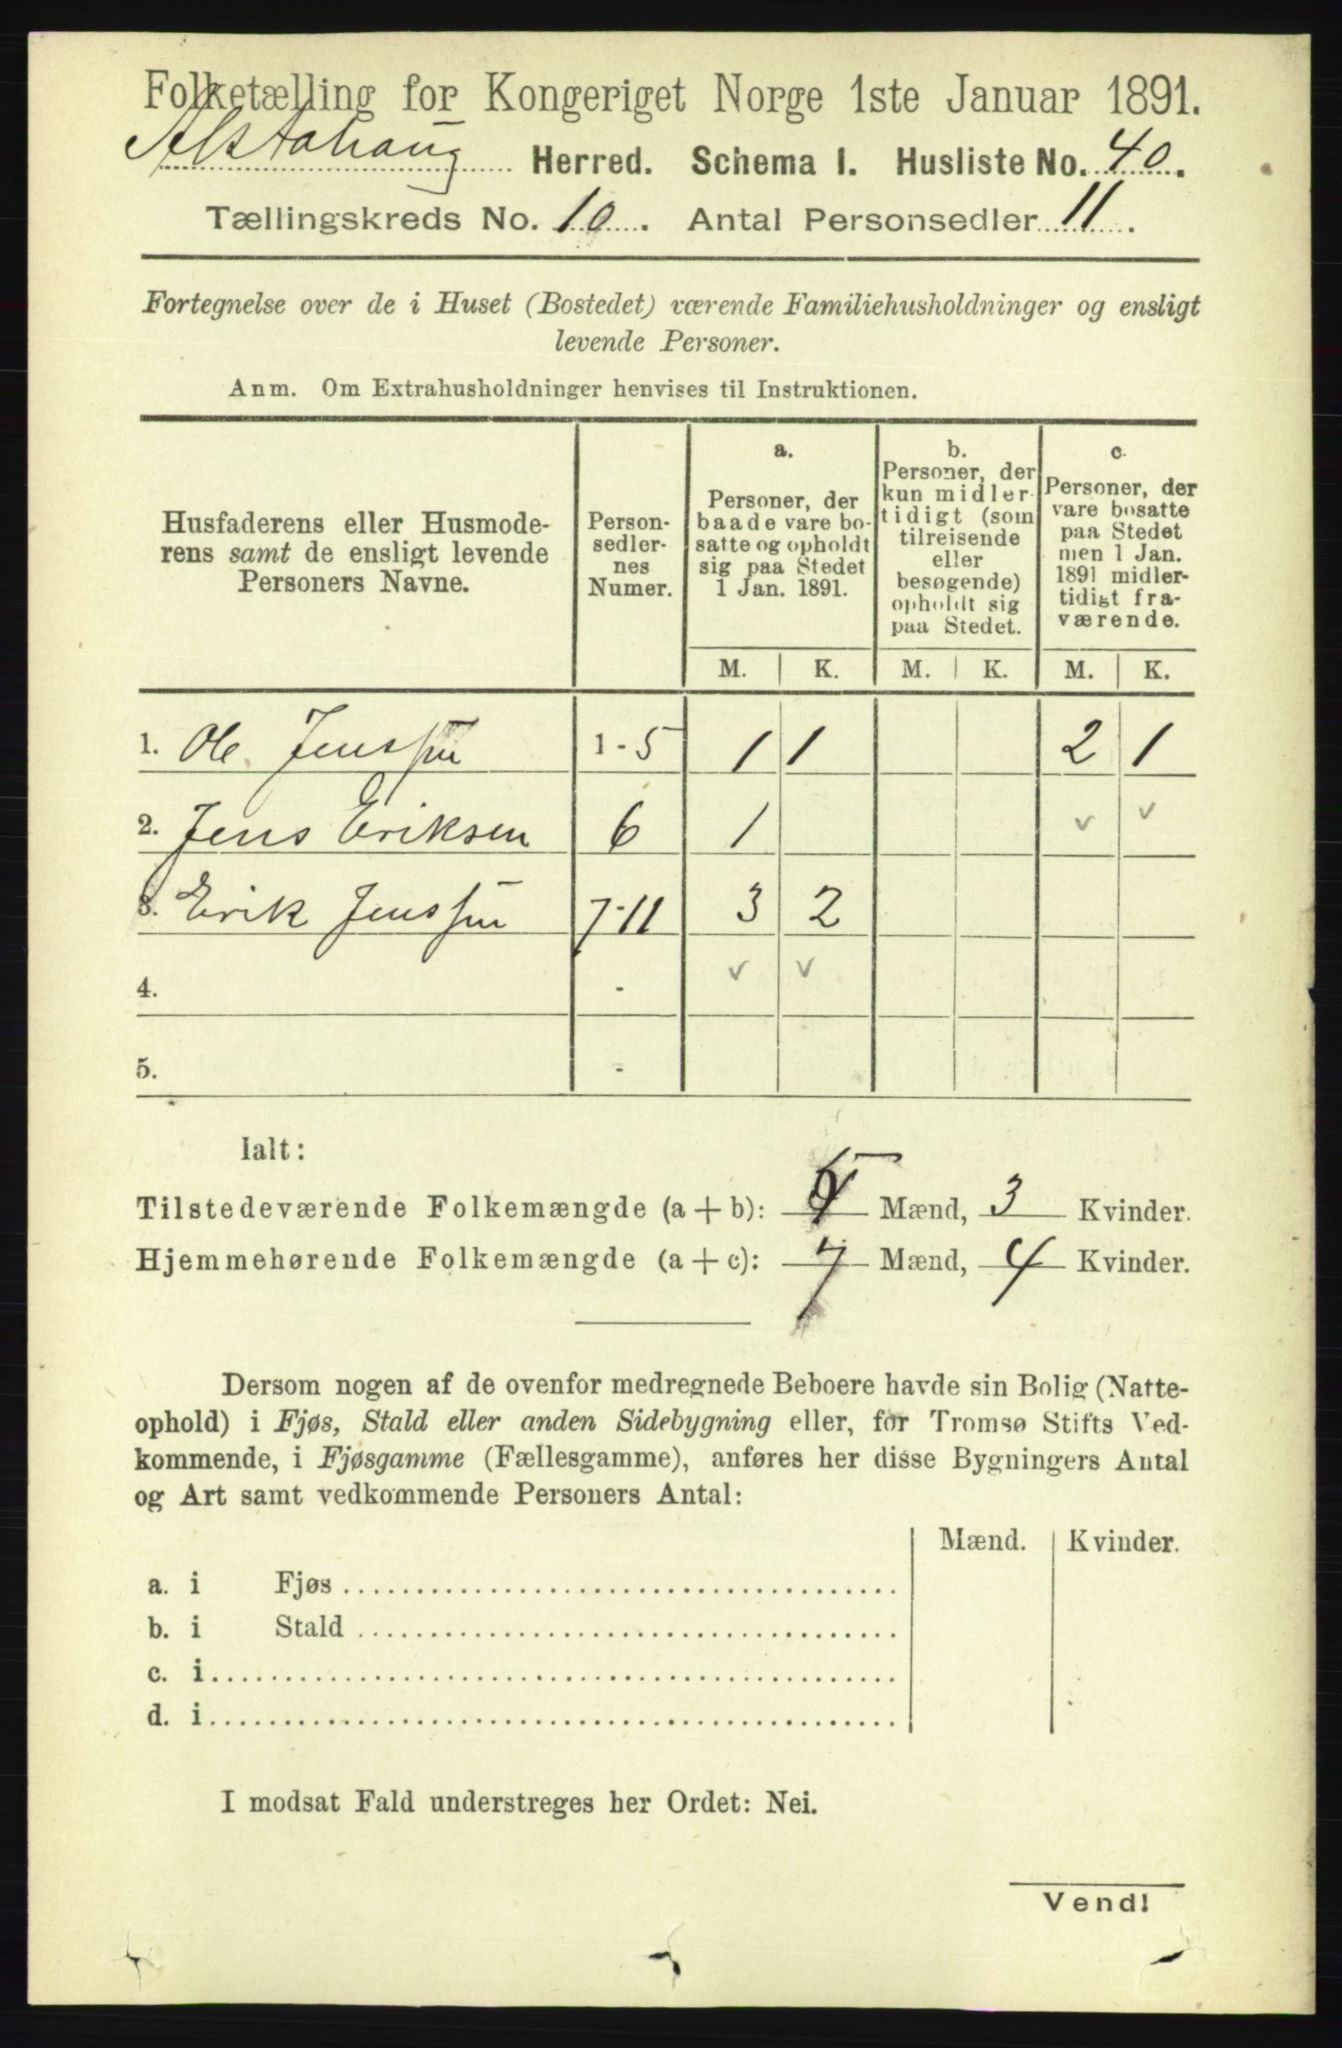 Folketælling for Kongeriget Norge 1ste Januar 1891.
Alstahaug Herred. Schema I. Husliste No. 40.
Tællingskreds No. 10. Antal Personsedler 11.
Fortegnelse over de i Huset (Bostedet) værende Familiehusholdninger og ensligt
levende Personer.
Anm. Om Extrahusholdninger henvises til Instruktionen.
Husfaderens eller Husmode-
rens samt de ensligt levende
Personers Navne.
Person-
sedler-
nes
Numer.
a.
Personer, der
baade vare bo-
satte og opholdt
sig paa Stedet
1 Jan. 1891.
b.
Personer, der
kun midler-
tidigt (som
tilreisende
eller
besøgende)
opholdt sig
paa Stedet.
c.
Personer, der
vare bosatte
paa Stedet
men 1 Jan.
1891 midler-
tidigt fra-
værende.
M. K. M. K. M. K.
1. Ole Jenssen 1-5 1 1 2 1
2. Jens Eriksen 6 1 v v
3. Erik Jenssen 7-11 3 2
4. - v v
5. -
Ialt:
Tilstedeværende Folkemængde (a+b): 5 Mænd, 3 Kvinder.
Hjemmehørende Folkemængde (a+c): 7 Mænd, 4 Kvinder.
Dersom nogen af de ovenfor medregnede Beboere havde sin Bolig (Natte-
ophold) i Fjøs, Stald eller anden Sidebygning eller, for Tromsø Stifts Ved-
kommende, i Fjøsgamme (Fællesgamme), anføres her disse Bygningers Antal
og Art samt vedkommende Personers Antal:
Mænd. Kvinder.
a. i Fjøs
b. i Stald
c. i
d. i
I modsat Fald understreges her Ordet: Nei.
Vend!